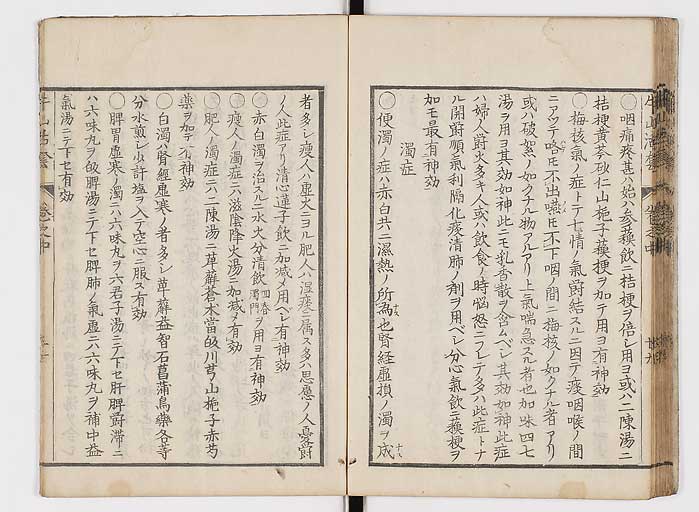 〇咽痛疼甚ハ始ハ参蘓飲ニ桔梗ヲ倍〆用ヨ或ハ二陳湯ニ
桔梗黄芩砂仁山梔子蘓梗ヲ加テ用ヨ有神効
〇梅核氣ノ症トテ七情ノ氣欝結スルニ因テ痰咽喉ノ間
ニアツテ咯モ不出嚥モ不下咽ノ間ニ梅核ノ如クナル者アリ
或ハ破絮ノ如クナル物アリ上氣喘急スル者也加味四七
湯ヲ用ヨ其効如神此ニモ乳香散ヲ含ムベシ其効如神此症
ハ婦人欝火多キ人或ハ飲食ノ時悩怒ニフレテ多ハ此症トナ
ル開欝順氣利膈化痰清肺ノ剤ヲ用ベシ分心氣飲ニ蘓梗ヲ
加モ最有神効
濁症
〇便濁ノ症ハ赤白共ニ濕熱ノ所為也腎経虚損ノ濁ヲ成
者多シ瘦人ハ虚火ニヨル肥人ハ湿痰ニ属ス多ハ思慮ノ人憂欝
ノ人此症アリ清心蓮子飲ニ加減〆用ベシ有神効
〇赤白濁ヲ治スルニ水火分清飲回春濁門ヲ用ヨ有神効
〇瘦人ノ濁症ニハ滋陰降火湯ニ加減〆有効
〇肥人ノ濁症ニハ二陳湯ニ萆薢蒼朮當皈川芎山梔子赤芍
藥ヲ加テ有神効
〇白濁ハ腎經虚寒ノ者多シ萆薢益智石菖蒲烏藥各等
分水煎〆少許塩ヲ入テ空心ニ服ス有効
〇脾胃虚寒ノ濁ニハ六味丸ヲ六君子湯ニテ下セ肝脾欝滞ニ
ハ六味丸ヲ皈脾湯ニテ下セ脾肺ノ氣虚ニハ六味丸ヲ補中益
氣湯ニテ下セ有効